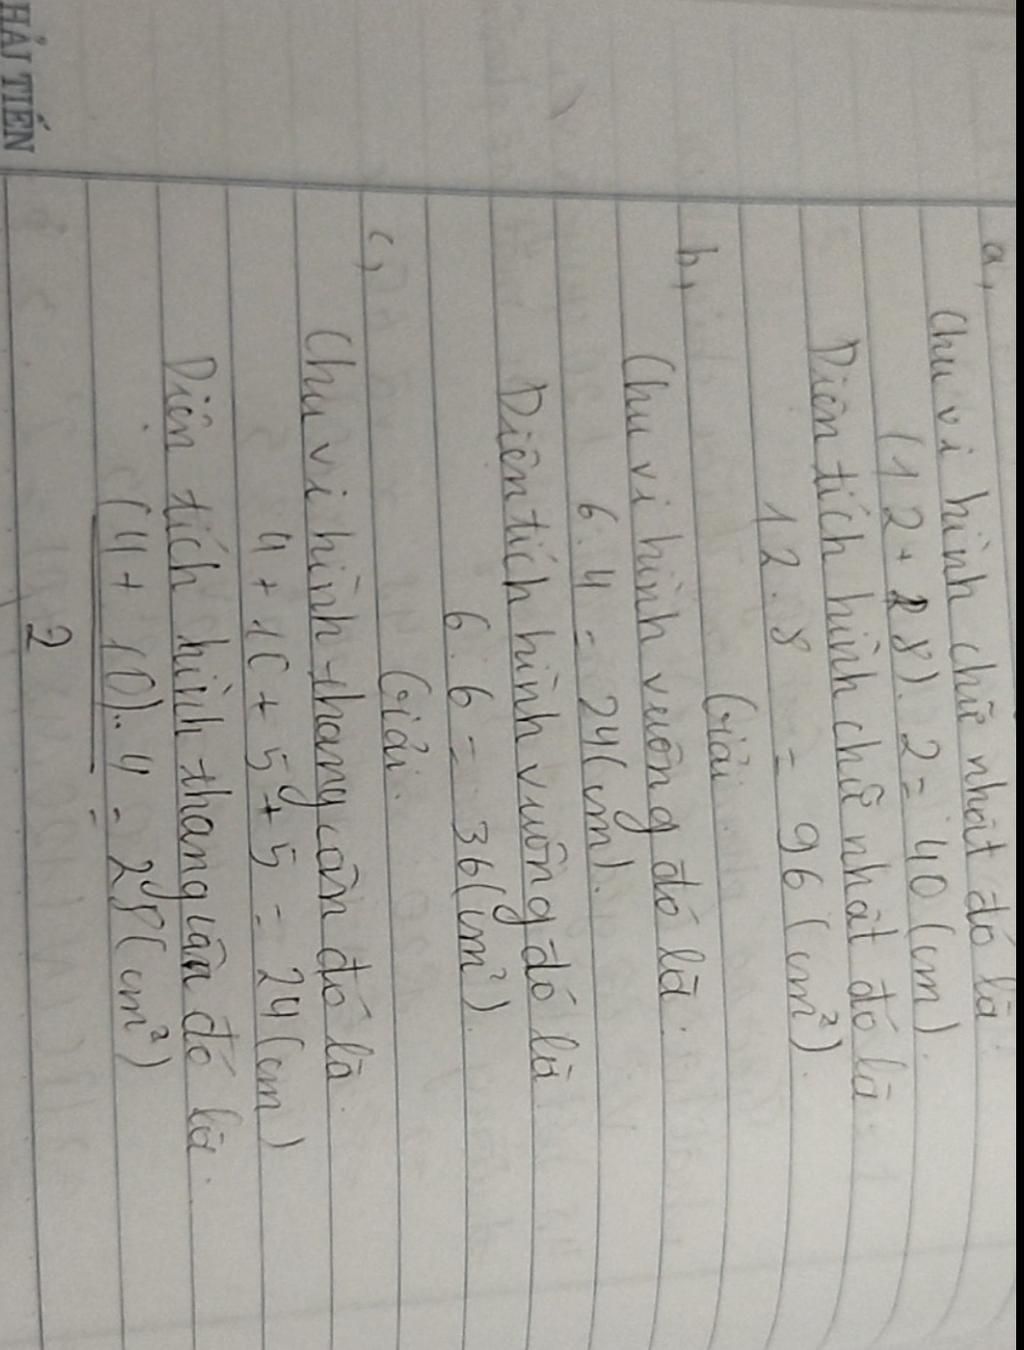 a, Chu vi hình chữ nhật đó là
(12 + 8). 2 = 40 (cm).
Diện tích hình chữ nhật đó là
12 . 8 = 96 (cm²).
Giải.
b, Chu vi hình vuông đó là.
6. 4 = 24 (cm).
Diện tích hình vuông đó là
6. 6 = 36 (cm²).
Giải.
c, Chu vi hình thang cân đó là
4 + 10 + 5 + 5 = 24 (cm)
Diện tích hình thang cân đó là.
(4 + 10). 4 = 28 (cm²)
2
HẢI TIẾN